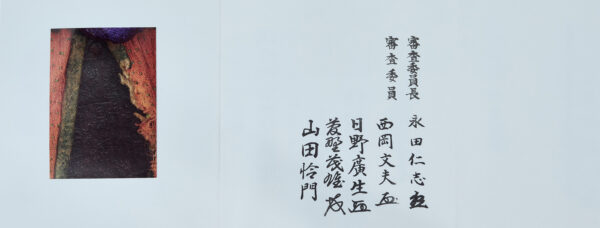 審査委員長 永田仁志
審査委員 西岡文夫
日野廣生
山田怜門